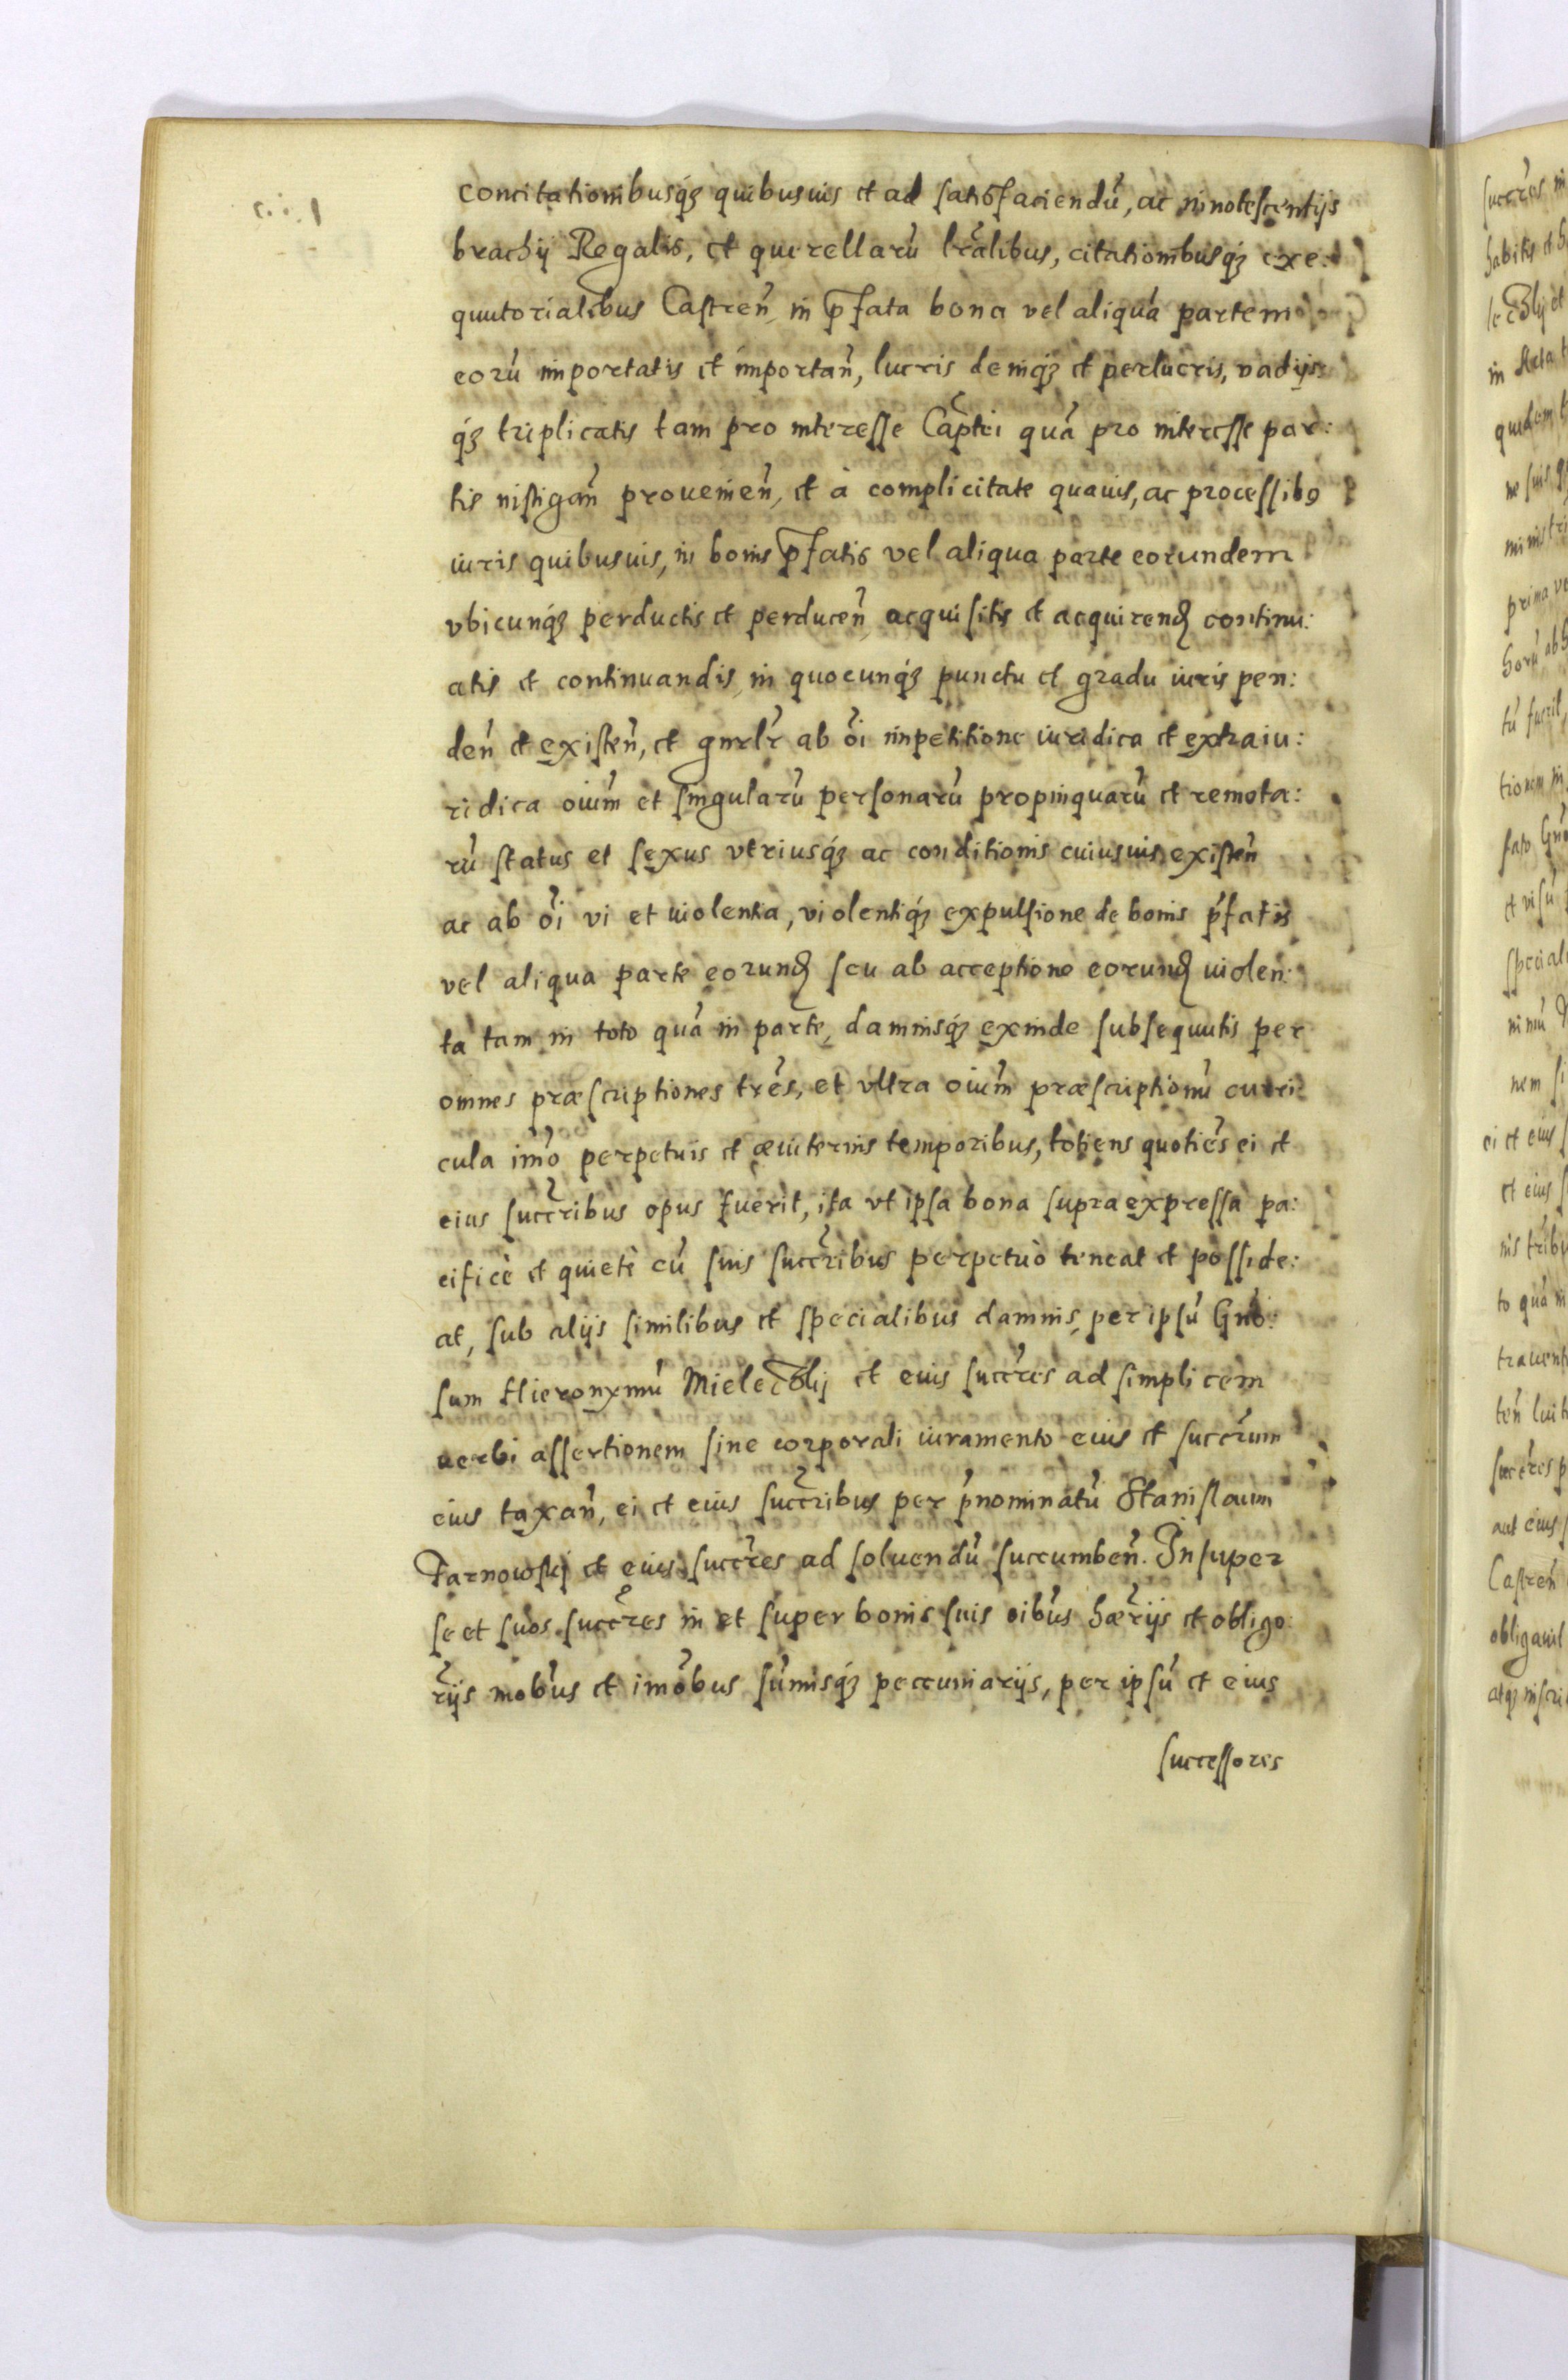 concitationibusq́ꝫ quibusuis et ad satisfaciendũ, ac innotescentijs
brachij Regalis, et querellarũ lr̃alibus, citationibusq́ꝫ exe:
quutorialibus Castreñ, in p̃fata bona vel aliquã partem
eorũ importatis et importañ, lucris deniq́ꝫ et perlucris, vadijs
q́ꝫ triplicatis tam pro interesse Cap̃tei quã pro interesse par:
tis instigañ proueniẽn, et à complicitate quauis, ac processibꝯ
iuris quibusuis, in bonis p̃fatis vel aliqua parte eorundem
vbicunq́ꝫ perductis et perduceñ acquisitis et acquirenđ continu:
atis et continuandis, in quocunq́ꝫ punctu et gradu iuris pen:
deñ et existeñ, et gnr̃lr ab oĩ impetitione iuridica et extraiu:
ridica oium̃ et singularũ personarũ propinquarũ et remota:
rũ status et sexus vtriusq́ꝫ ac conditionis cuiusuis existeñ
ac ab oĩ vi et uiolentia, violentiq́ꝫ expulsione de bonis p̃fatis
vel aliqua parte eorunđ seu ab acceptione eorunđ uiolen:
ta tam in toto quã in parte, damnisq́ꝫ exinde subsequutis per
omnes præscriptiones trẽs, et vltra oium̃ præscriptionũ curri
cula imò perpetuis et æuiternis temporibus, totiens quotiẽs ei et
eius succr̃ibus opus fuerit, ita vt ipsa bona supra expressa pa:
cificè et quietè cũ suis succr̃ibus perpetuò teneat et posside:
at, sub alijs similibus et specialibus damnis, per ipsũ Gño:
sum Hieronymũ Mieleczkij et euis succr̃es ad simplicem
verbi assertionem sine corporali iuramento eius et succr̃um
eius taxañ, ei et eius succr̃ibus per p̃nominatũ Stanislaum
Tarnowskj et eius succr̃es ad soluendũ succumbeñ. Insuper
se et suos succr̃es in et super bonis suis oibus̃ hær̃ijs et obligo:
r̃ijs mobus̃ et imobus̃ sum̃isq́ꝫ peccuniarijs, per ipsũ et eius
successores